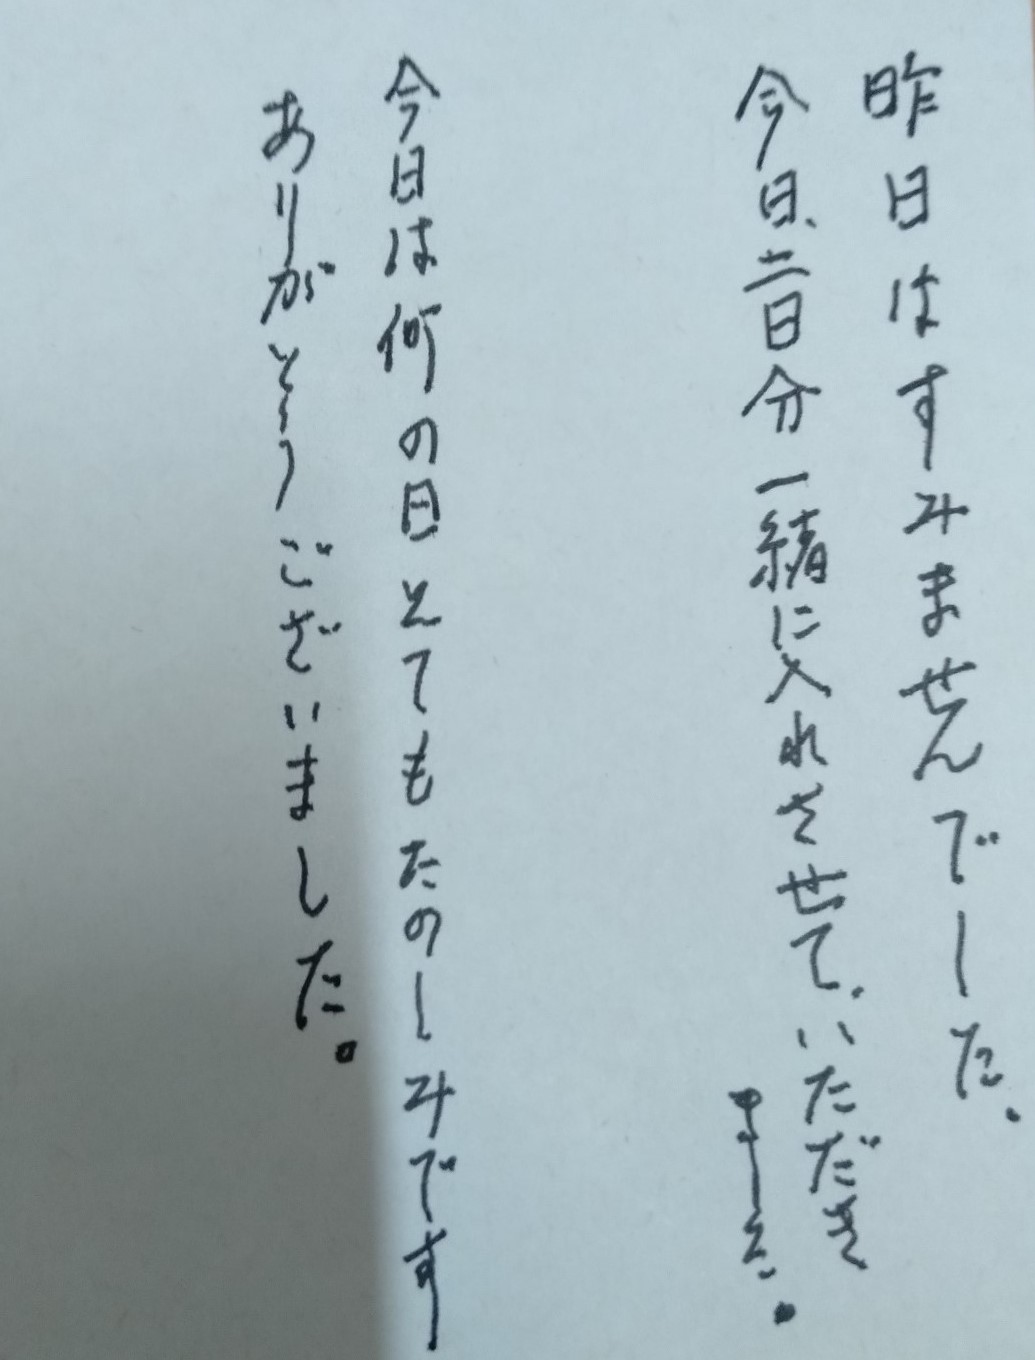 昨日はすみませんでした。
今日、二日分一緒に入れさせて、いただき
ました。
今日は何の日とてもたのしみです
ありがとうございました。